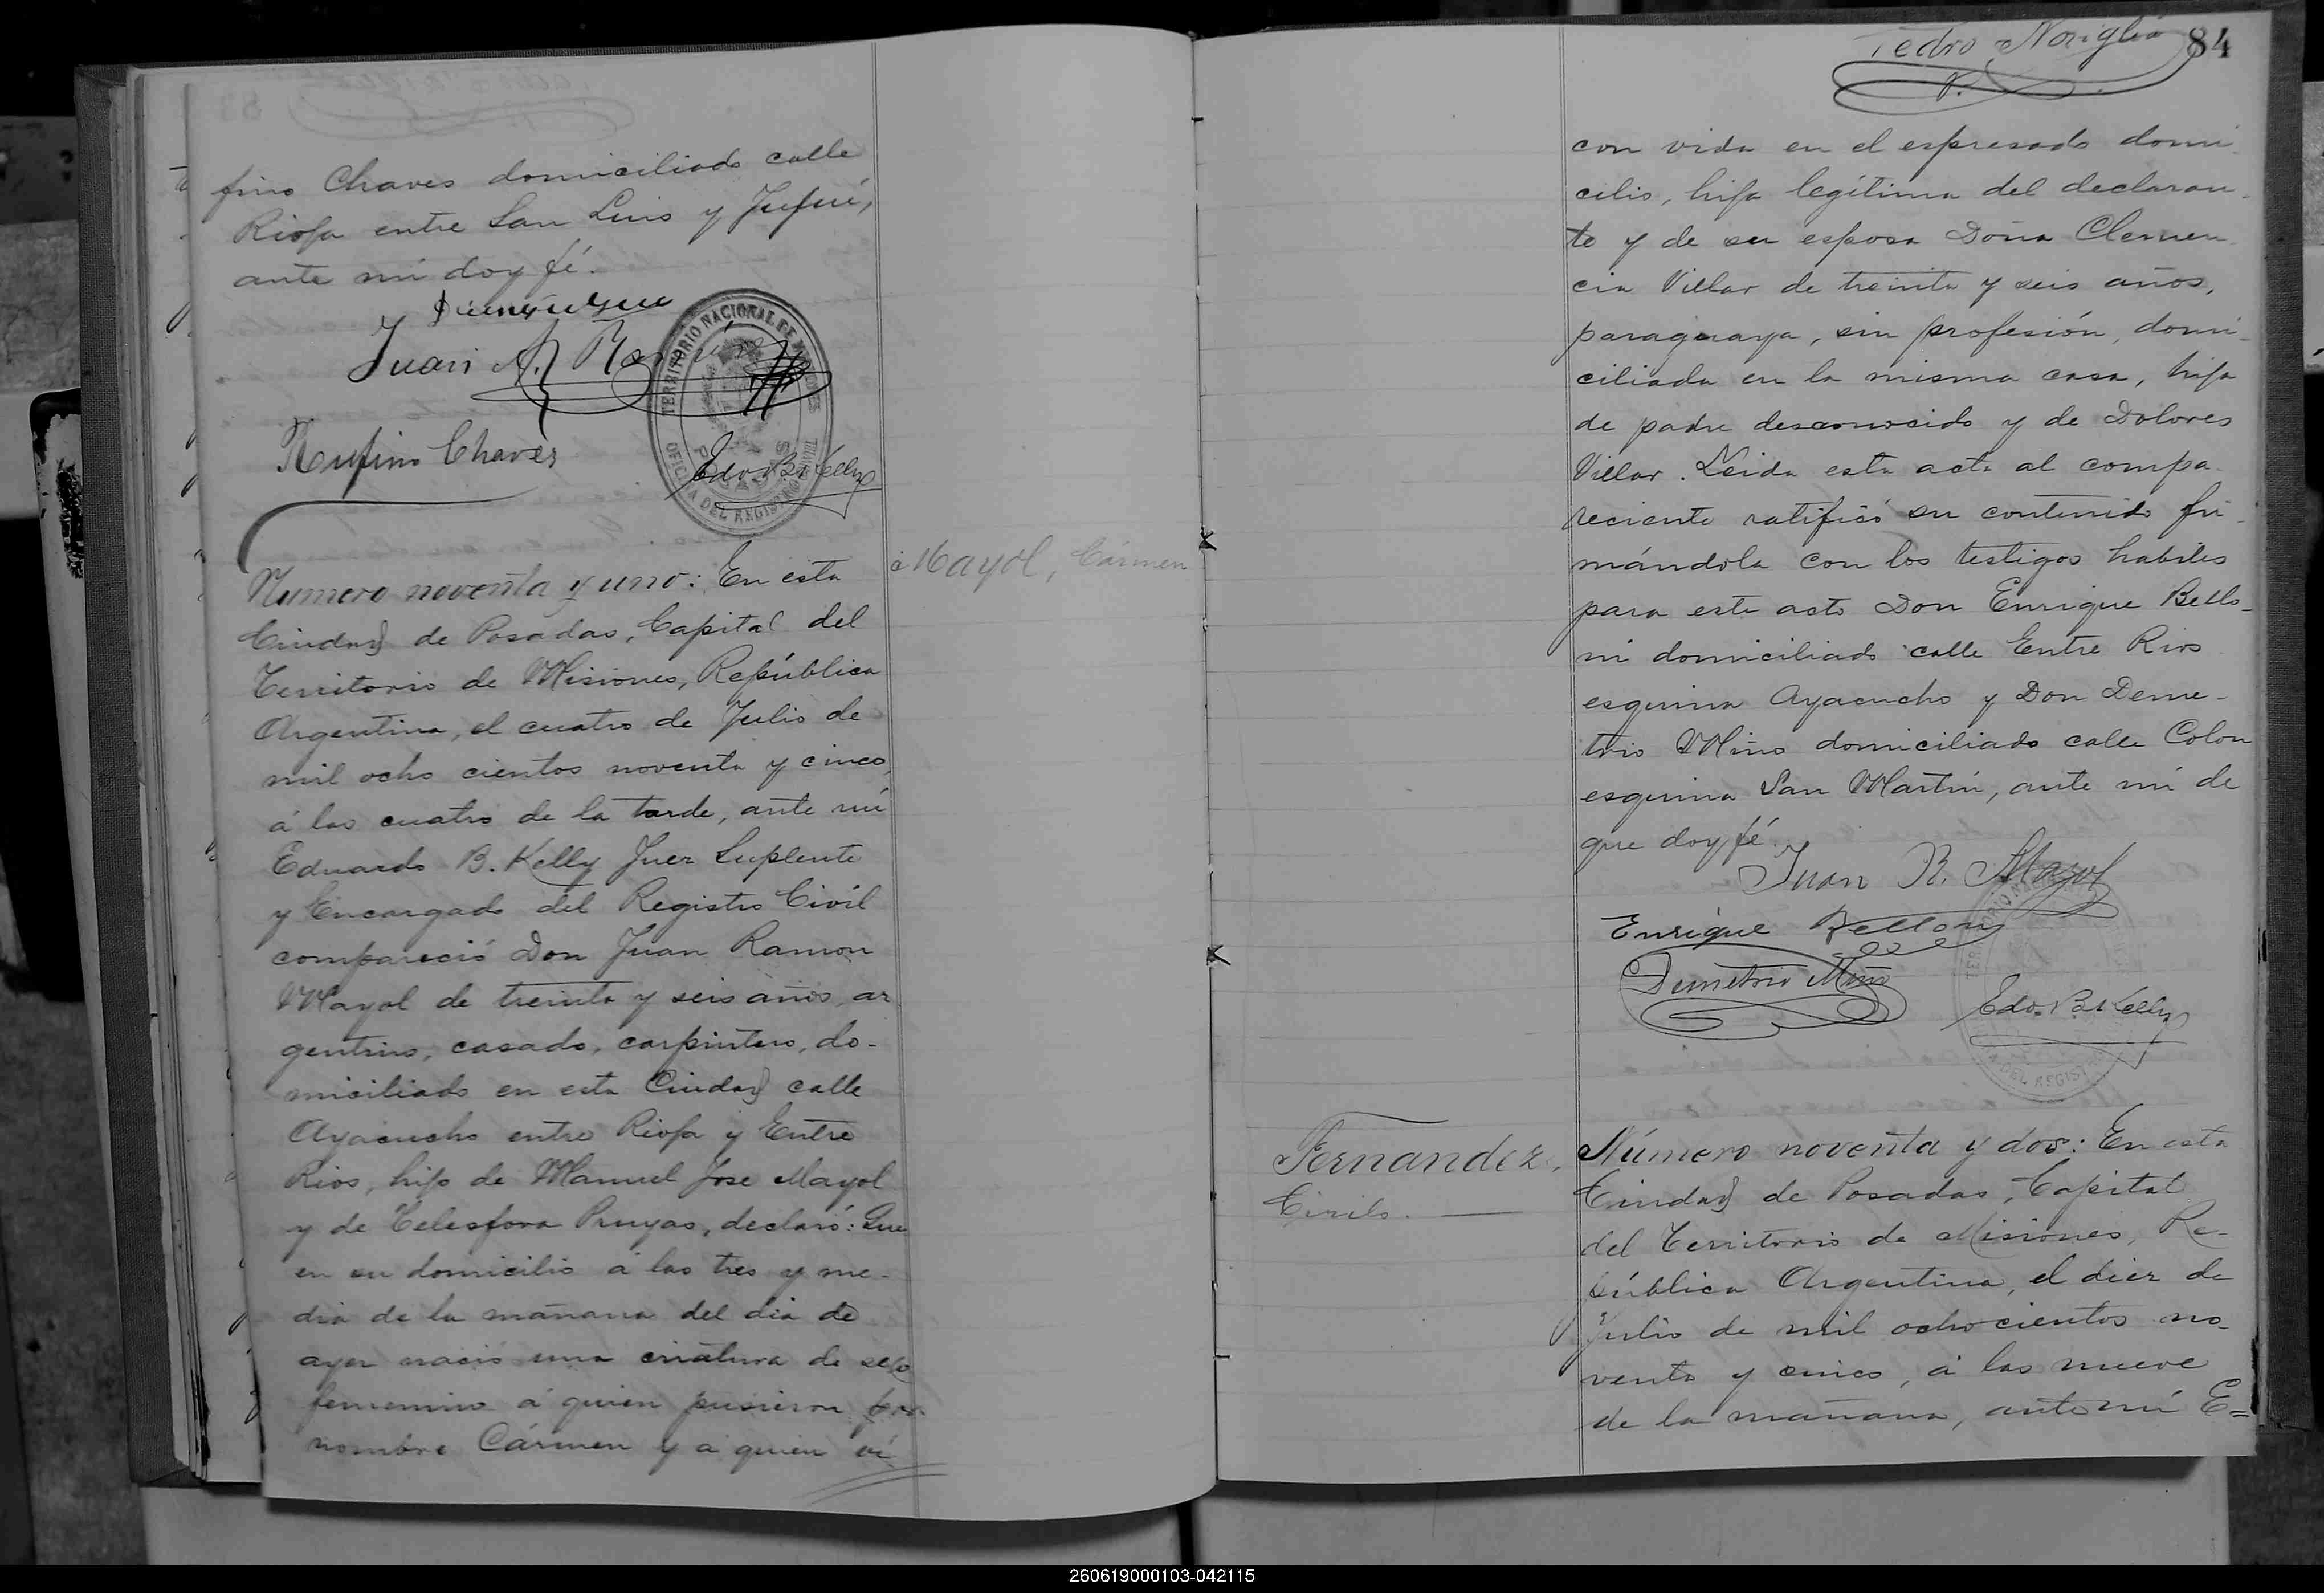 fino Chaves domiciliado calle
Rioja entre San Luis y Jujuí,
ante mí doy fé.
Juan A.
Rufino Chaves
TERRITORIO NACIONAL DE MISIONES
OFICINA DEL REGISTRO CIVIL
POSADAS
Edo. B. Kelly
Mayol, Cármen
Numero noventa y uno: En esta
Ciudad de Posadas, Capital del
Territorio de Misiones, República
Argentina, el cuatro de Julio de
mil ocho cientos noventa y cinco,
á las cuatro de la tarde, ante mí
Eduardo B. Kelly Juez Suplente
y Encargado del Registro Civíl
compareció Don Juan Ramon
Mayol de treinta y seis años, ar
gentino, casado, carpintero, do-
miciliado en esta Ciudad calle
Ayacucho entre Rioja y Entre
Rios, hijo de Manuel Jose Mayol
y de Telesfora Pruyas, declaró: Que
en su domicilio á las tres y me-
dia de la mañana del dia de
ayer nació una criatura de sexo
femenino á quien pusieron por
nombre Cármen y a quien ví
Pedro Noriglia
84
con vida en el espresado domi-
cilio, hija legítima del declaran-
te y de su esposa Doña Clemen-
cia Villar de treinta y seis años,
paraguaya, sin profesión, domi-
ciliada en la misma casa, hija
de padre desconocido y de Dolores
Villar. Leida esta acta al compa-
reciente ratificó su contenido fir-
mándola con los testigos habiles
para este acto Don Enrique Bello-
ni domiciliado calle Entre Rios
esquina Ayacucho y Don Deme-
trio Miño domiciliado calle Colon
esquina San Martín, ante mí de
que doy fé.
Juan R. Mayol
Enrique Belloni
Demetrio Miño
Edo. B. Kelly
DEL REGISTRO
Fernandez,
Cirilo.
Número noventa y dos: En esta
Ciudad de Posadas, Capital
del Territorio de Misiones, Re-
pública Argentina, el diez de
Julio de mil ochocientos no-
venta y cinco, á las nueve
de la mañana, ante mí E=
260619000103-042115